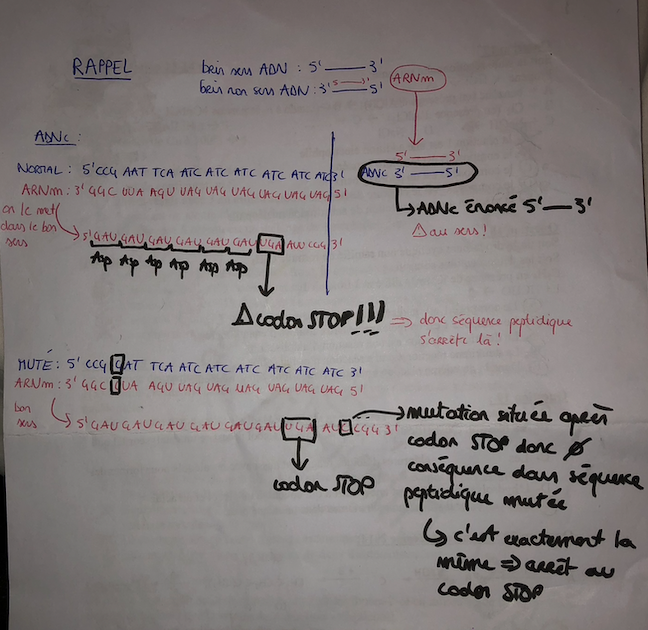 RAPPEL
brin sens ADN : 5' — 3'
brin non sens ADN : 3' — 5'
5' — 3'
ARNm
ADNc :
5' — 3'
ADNc 3' — 5'
→ ADNc ÉNONCÉ 5' — 3'
⚠ au sens !
NORMAL : 5' CCG AAT TCA ATC ATC ATC ATC ATC ATC 3'
ARNm : 3' GGC UUA AGU UAG UAG UAG UAG UAG UAG 5'
on le met
dans le bon
sens
5' GAU GAU GAU GAU GAU GAU UGA AUU CGG 3'
Asp Asp Asp Asp Asp Asp
⚠ codon STOP !!!
⇒ donc séquence peptidique
s'arrête là !
MUTÉ : 5' CCG GAT TCA ATC ATC ATC ATC ATC ATC 3'
ARNm : 3' GGC CUA AGU UAG UAG UAG UAG UAG UAG 5'
bon
sens
5' GAU GAU GAU GAU GAU GAU UGA AUC CGG 3'
codon STOP
→ mutation située après
codon STOP donc ∅
conséquence dans séquence
peptidique mutée
↳ c'est exactement la
même ⇒ arrêt au
codon STOP